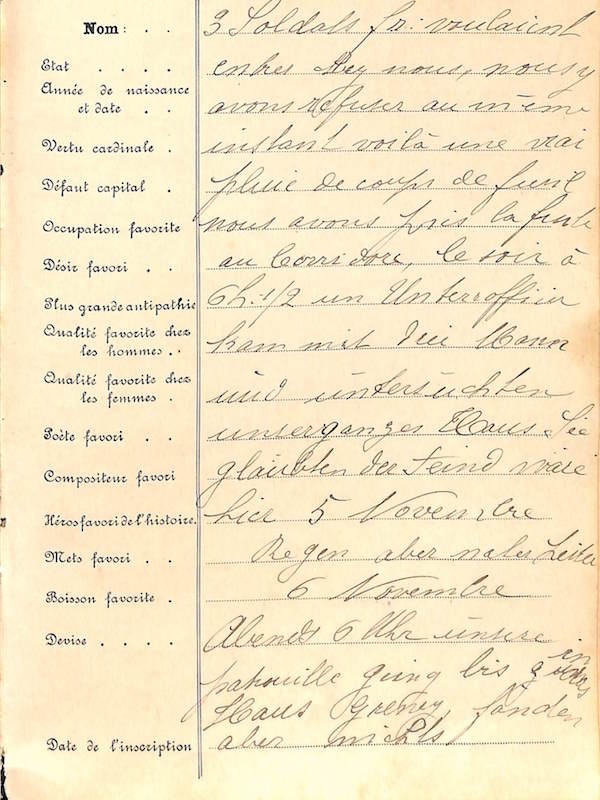 Nom : . . 3 Soldats fr: voulaient
Etat . . . . entres chez nous, nous y
Année de naissance
et date . . avons refuser au même
Vertu cardinale . instant voilà une vrai
Défaut capital . pluie de coups de fusil
Occupation favorite nous avons pris la fuite
Désir favori . . au Corridore, le soir à
Plus grande antipathie 6h.1/2 un Unteroffizier
Qualité favorite chez
les hommes . . kam mit drei Mann
Qualité favorite chez
les femmes . und untersuchten
Poète favori . . unser ganzes Haus. Sie
Compositeur favori glaubten der Feind wäre
Héros favori de l'histoire. hier 5 Novembre
Mets favori . . Regen aber nales
Boisson favorite . 6 Novembre
Devise . . . . Abends 6 Uhr unsere
patrouille ging bis in
Haus fanden
Date de l'inscription aber nichts